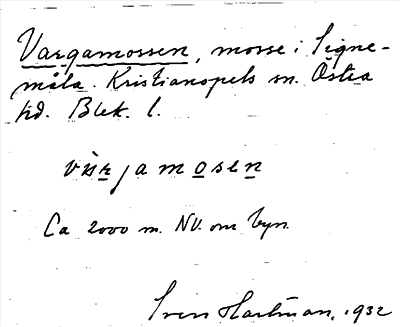 Vargamossen, mosse i Signe-
måla. Kristianopels sn. Östra
hd. Blek. l.
mosen
Ca 2000 m. NV. om byn.
Sven Hartman, 1932